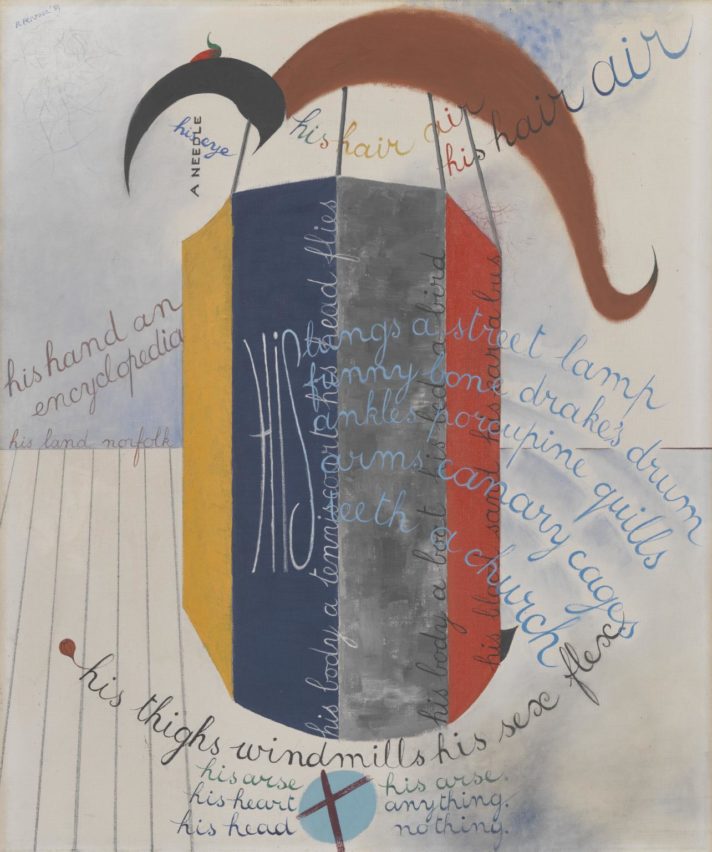 R. Penrose 39
his eye
A NEEDLE
his hair air
his hair air
his hand an
encyclopedia
his land norfolk
HIS
lungs a street lamp
funny bone drake's drum
ankles porcupine quills
arms canary cages
teeth a church
his body a tenniscourt his head flies
his body a boot his bed a bird
his blood sand his a bus
his thighs windmills his sex flex
his arse
his heart
his head
his arse.
anything.
nothing.